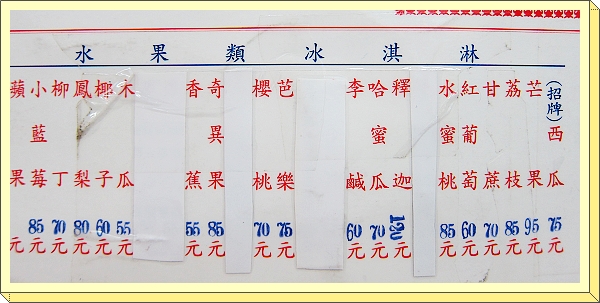 水果類冰淇淋
(招牌)西瓜 75元
芒果 95元
荔枝 85元
甘蔗 70元
紅葡萄 60元
水蜜桃 85元
釋迦 120元
哈蜜瓜 70元
李鹹 60元
芭樂 75元
櫻桃 70元
奇異果 85元
香蕉 55元
木瓜 55元
椰子 60元
鳳梨 80元
柳丁 70元
小藍莓 85元
蘋果 元